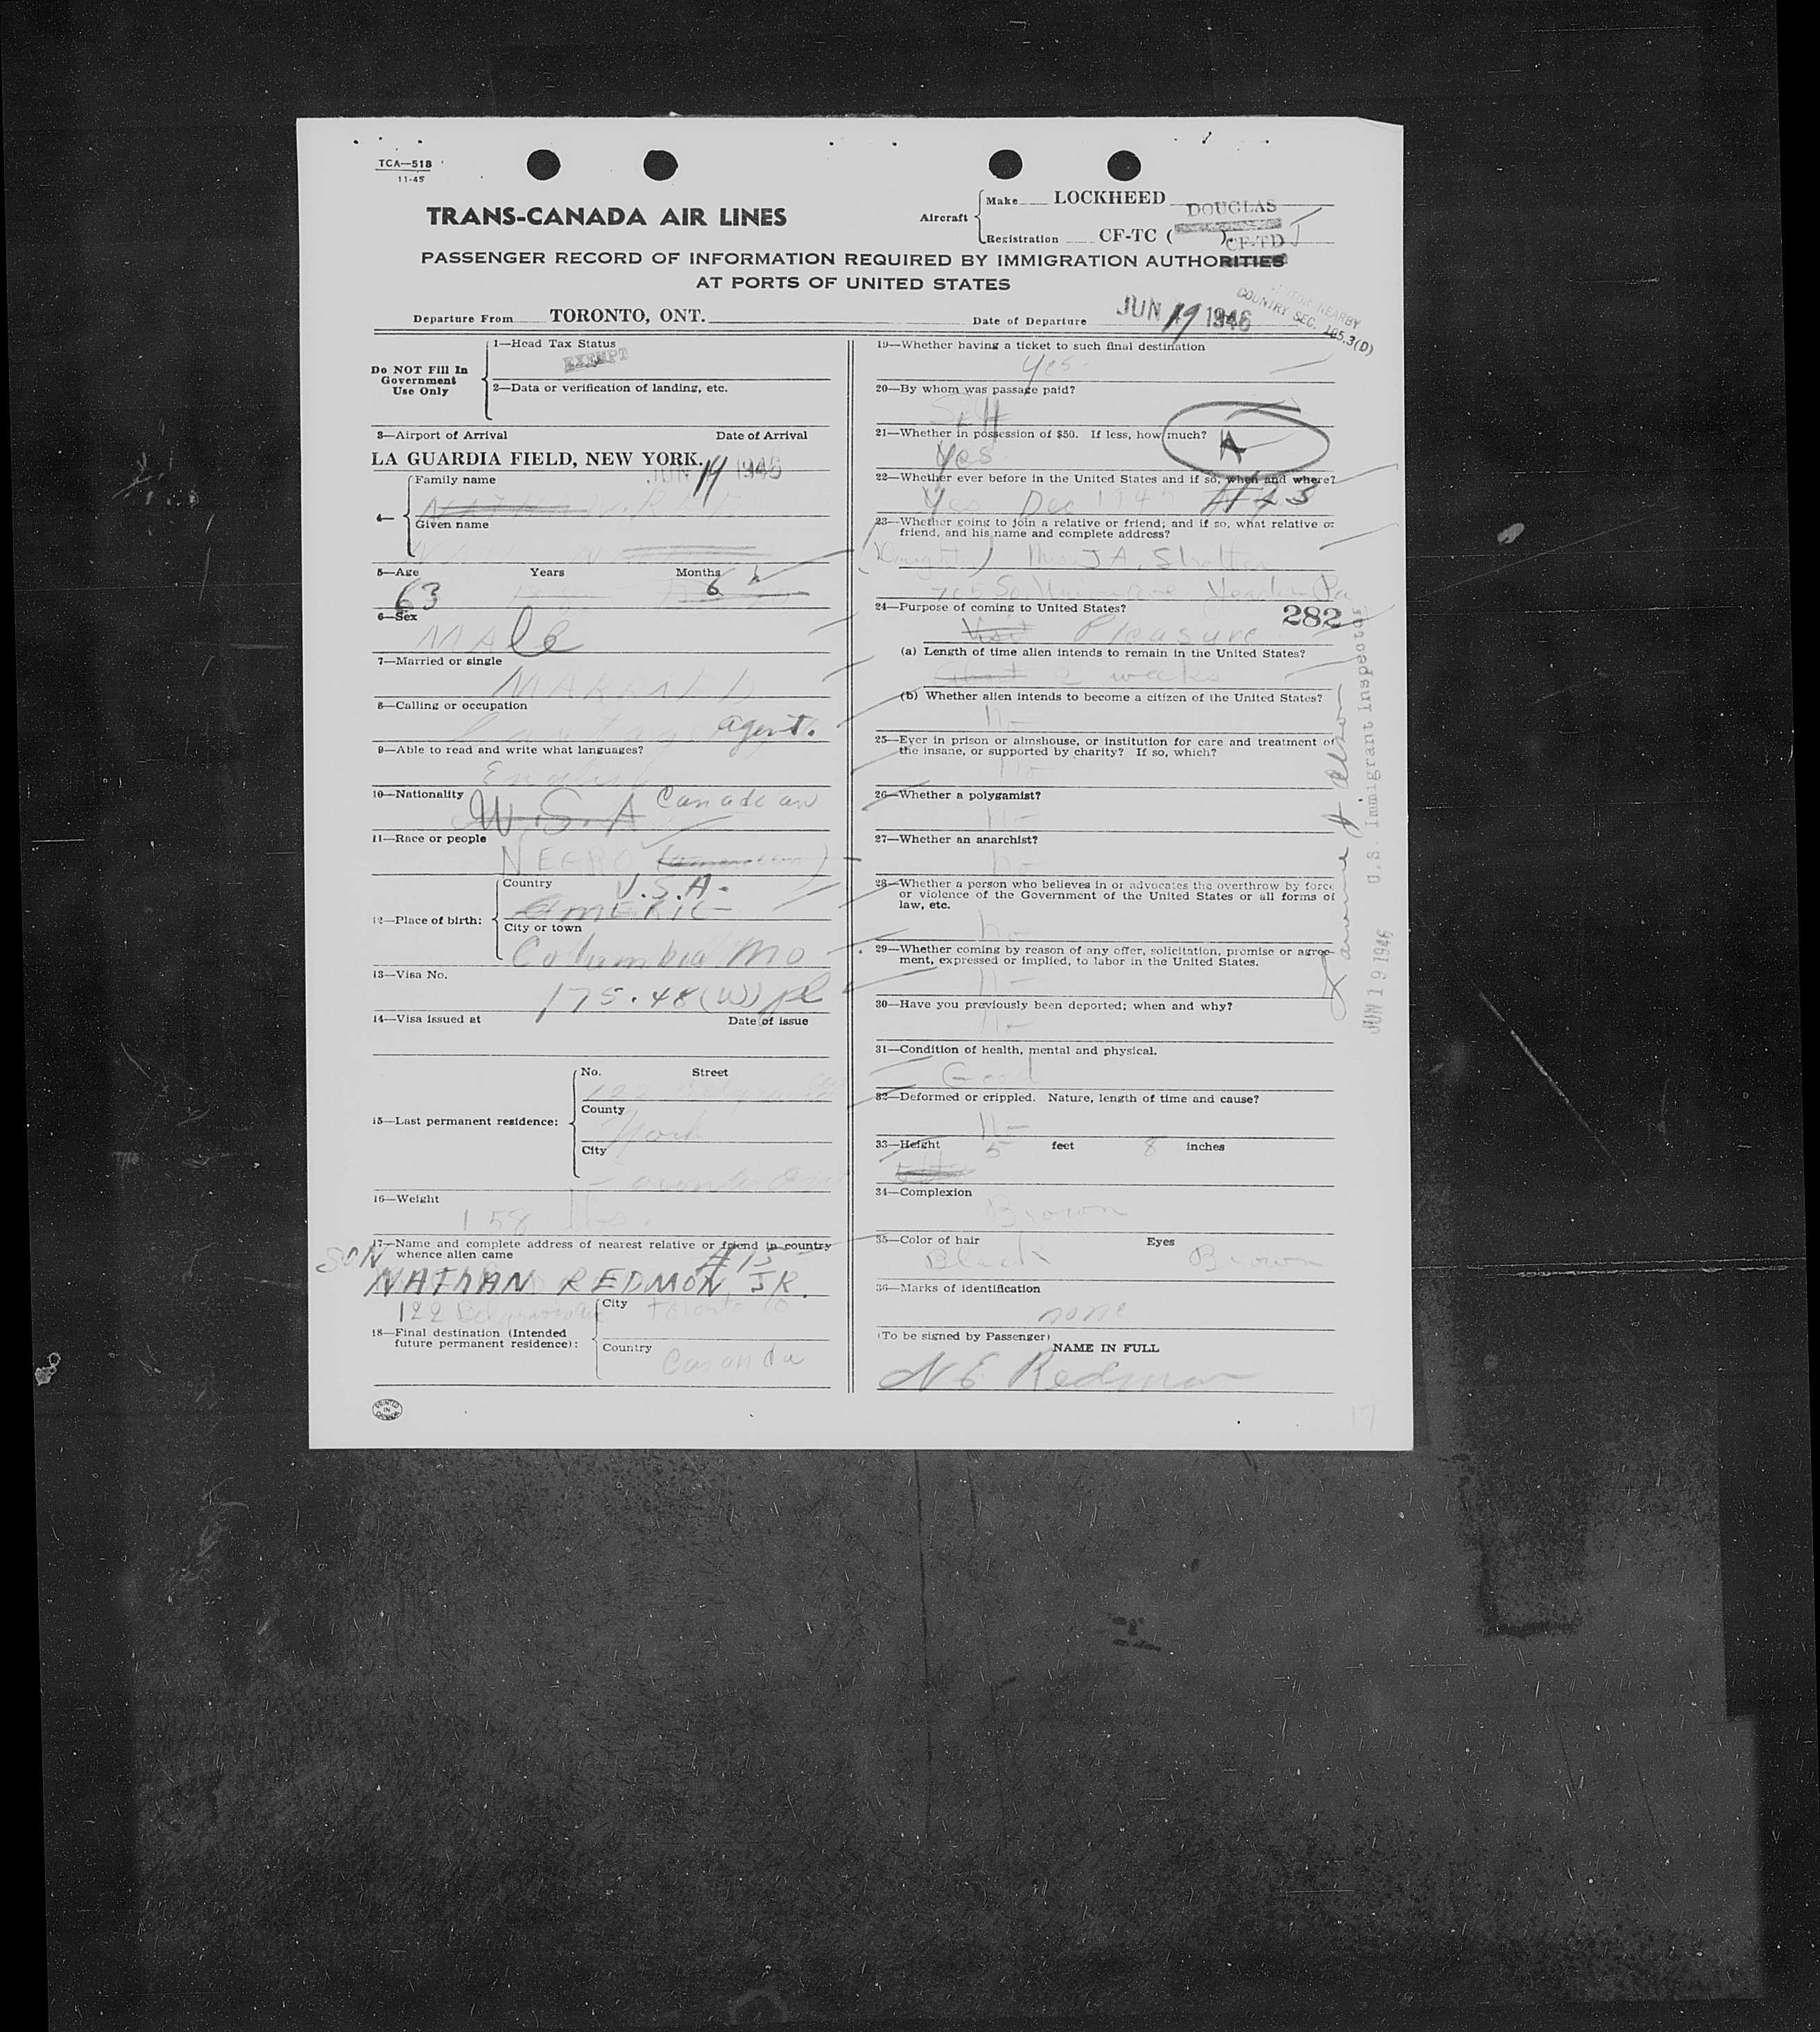 TCA—518
11-45
TRANS-CANADA AIR LINES
Aircraft
Make LOCKHEED DOUGLAS
Registration CF-TC ( ) CF-TD J
PASSENGER RECORD OF INFORMATION REQUIRED BY IMMIGRATION AUTHORITIES
AT PORTS OF UNITED STATES
Departure From TORONTO, ONT.
Date of Departure JUN 19 1946
VISITOR NEARBY
COUNTRY SEC. 165.3(D)
Do NOT Fill In
Government
Use Only
1—Head Tax Status
EXEMPT
2—Data or verification of landing, etc.
3—Airport of Arrival Date of Arrival
LA GUARDIA FIELD, NEW YORK. JUN 19 1946
4—
Family name
Given name
5—Age Years Months
63 6
6—Sex
MAle
7—Married or single
MARRIED
8—Calling or occupation
agent.
9—Able to read and write what languages?
English
10—Nationality
U.S.A Canadean
11—Race or people
NEGRO (american)
12—Place of birth:
Country
U.S.A.
City or town
Columbia Mo
13—Visa No.
175.48(W)
14—Visa issued at Date of issue
15—Last permanent residence:
No. Street
122
County
York
City
16—Weight
158 lbs.
17—Name and complete address of nearest relative or friend in country
whence alien came
SON
#15
NATHAN REDMON JR.
122
City Toronto
18—Final destination (Intended
future permanent residence):
Country
Cananda
PRINTED IN CANADA
19—Whether having a ticket to such final destination
Yes
20—By whom was passage paid?
Self
21—Whether in possession of $50. If less, how much?
Yes
A
22—Whether ever before in the United States and if so, when and where?
Yes Dec
23—Whether going to join a relative or friend; and if so, what relative or
friend, and his name and complete address?
J A. Stratton
Yeadon Pa
24—Purpose of coming to United States?
282
Visit Pleasure
(a) Length of time alien intends to remain in the United States?
About 2 weeks
(b) Whether alien intends to become a citizen of the United States?
n-
25—Ever in prison or almshouse, or institution for care and treatment of
the insane, or supported by charity? If so, which?
no
26—Whether a polygamist?
n-
27—Whether an anarchist?
n-
28—Whether a person who believes in or advocates the overthrow by force
or violence of the Government of the United States or all forms of
law, etc.
no
29—Whether coming by reason of any offer, solicitation, promise or agree-
ment, expressed or implied, to labor in the United States.
n-
30—Have you previously been deported; when and why?
n-
31—Condition of health, mental and physical.
Good
32—Deformed or crippled. Nature, length of time and cause?
n-
33—Height 5 feet 8 inches
34—Complexion
Brown
35—Color of hair Eyes
Black Brown
36—Marks of identification
none
(To be signed by Passenger)
NAME IN FULL
N E Redmon
JUN 19 1946 U.S. Immigrant Inspector
17